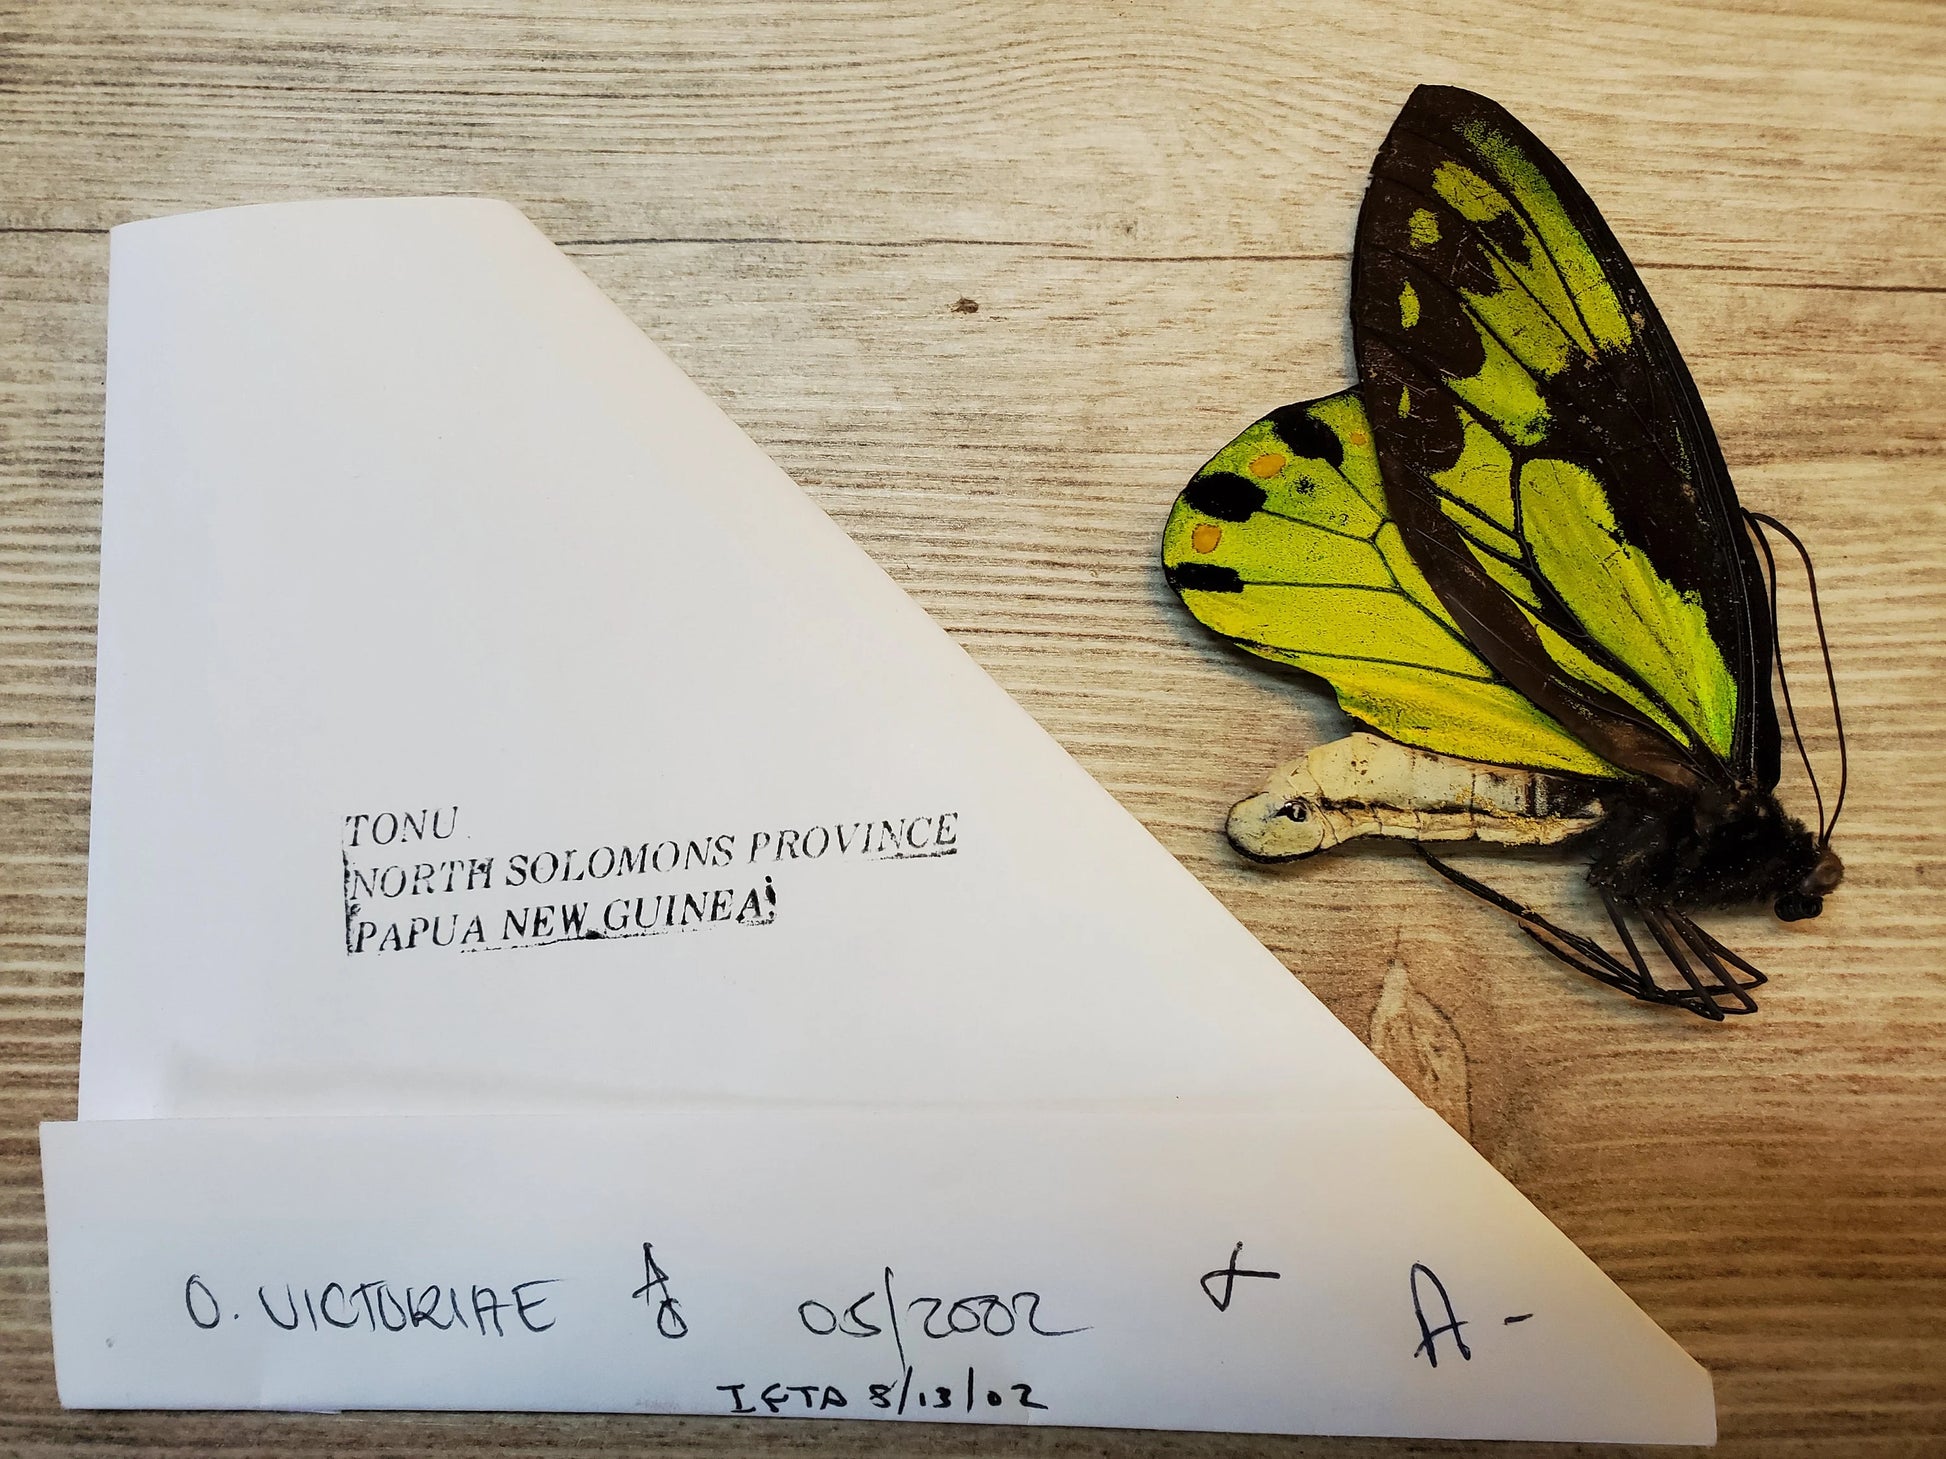 TONU
NORTH SOLOMONS PROVINCE
PAPUA NEW GUINEA
O. VICTORIAE ♂ 05/2002 A-
8/13/02